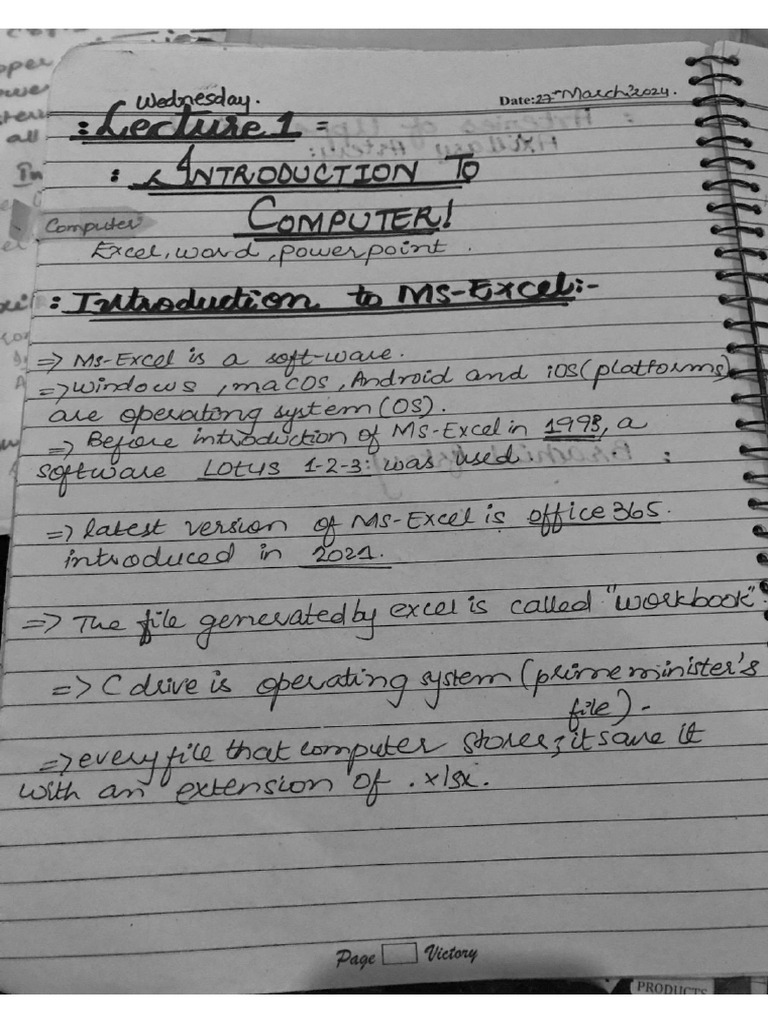 Wednesday.
Date: 27th March'2024.
: Lecture 1 :
: INTRODUCTION TO
COMPUTER!
Computer
Excel, word, powerpoint.
: Introduction to MS-Excel:-
=> Ms-Excel is a soft-ware.
=> windows, macOS, Android and iOS (platforms)
are operating system (OS).
=> Before introduction of MS-Excel in 1993, a
software LOTUS 1-2-3: was used :
=> latest version of MS-Excel is office 365.
introduced in 2021.
=> The file generated by excel is called "workbook".
=> C drive is operating system (prime minister's
file) -
=> every file that computer stores; it save it
with an extension of .xlsx.
Page Victory
PRODUCTS